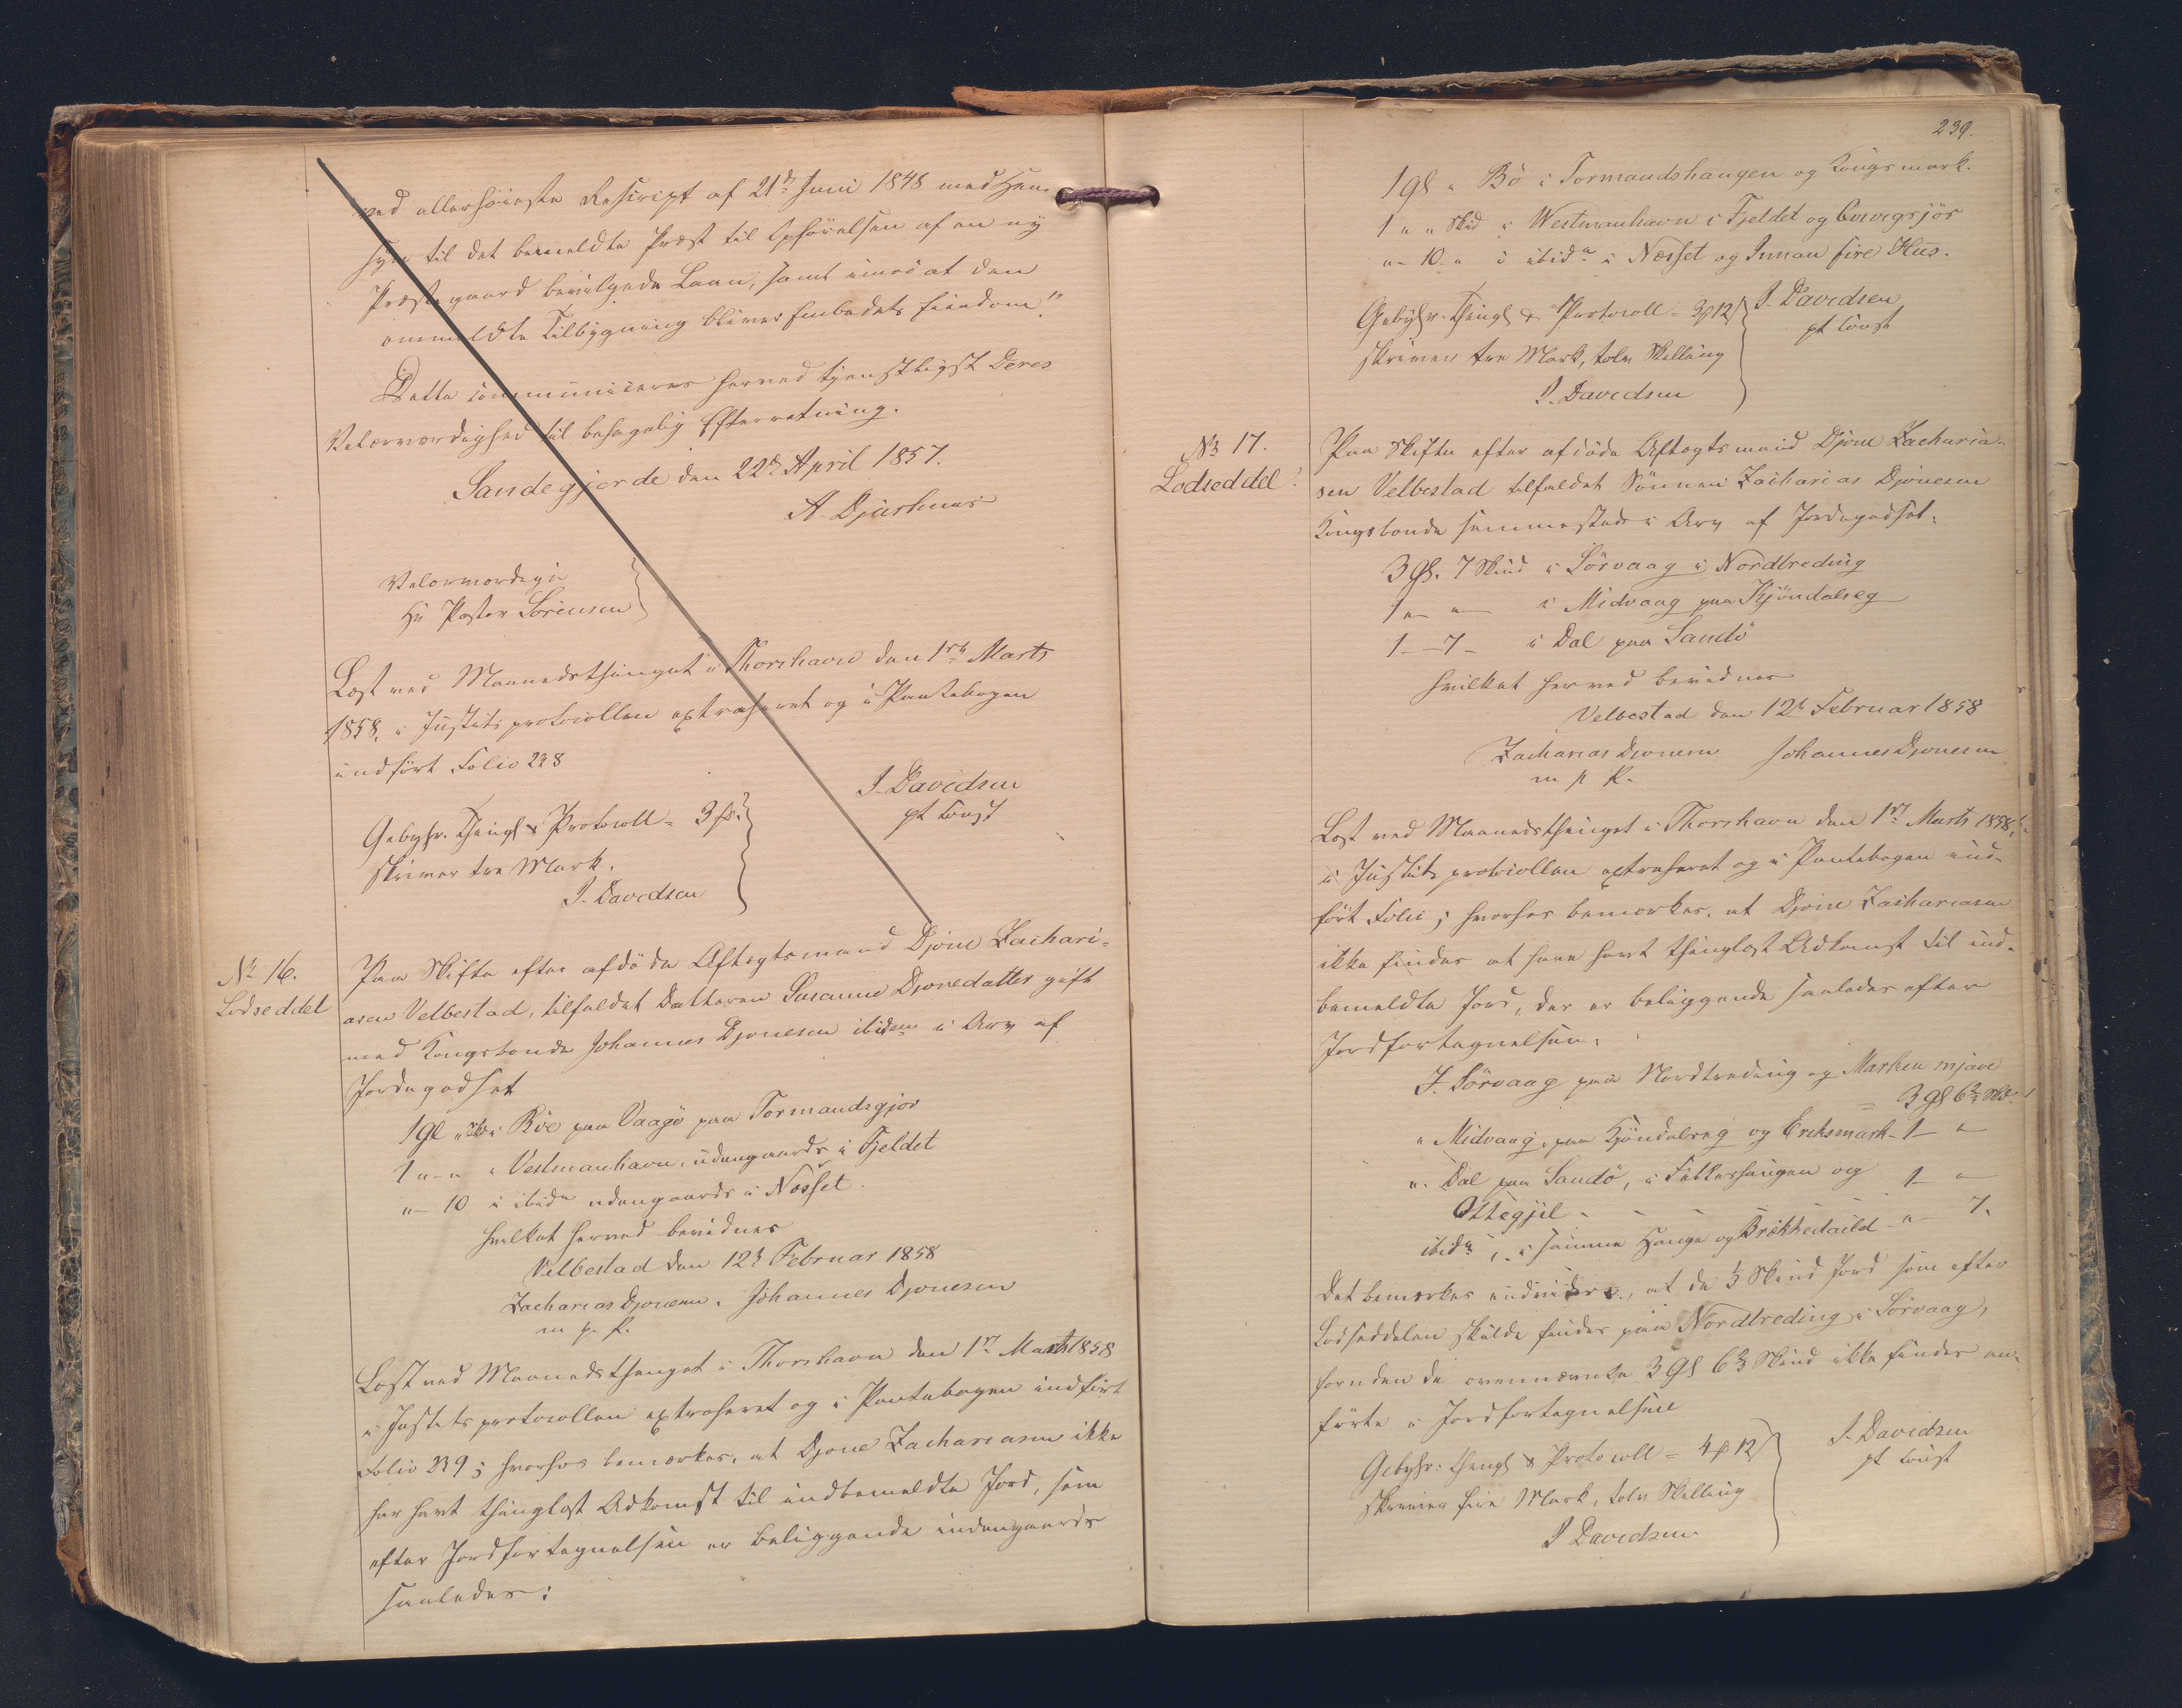 ved allerhøieste Rescript af 21de Juni 1848 med Hen-
syn til det bemeldte Præst til Opførelsen af en ny
Præstegaard bevilgede Laan, samt imod at den
ommeldte Tilbygning bliver Embedets Eiendom."
Dette communiceres herved tjenstligst Deres
Velærværdighed til behagelig Efterretning.
Sandegjerde den 22de April 1857.
A. Djurhuus
Velærværdige
Hr Pastor Sørensen
Læst ved Maanedsthinget i Thorshavn den 1ste Marts
1858, i Justitsprotocollen extraheret og i Pantebogen
indført Folio 238
J. Davidsen
pt const
Gebyhr. Thingl & Protocoll = 3
skriver tre Mark.
J. Davidsen
№ 16.
Lodseddel
Paa Skifte efter afdøde Aftægtsmand Djone Zachari-
asen Velbestad, tilfaldet Datteren Susanne Djonedatter gift
med Kongsbonde Johannes Djonesen ibidem i Arv af
Jordegodset
1 gl " Sk i Bøe paa Vaagø paa Tormandsgjor
1 " - " " Vestmanhavn, udengaards i Fjeldet
" - 10 i ibidm udengaards i Næsset.
hvilket herved bevidnes
Velbestad den 12te Februar 1858
Zacharias Djonesen. Johannes Djonesen
m. p. P.
Læst ved Maanedsthinget i Thorshavn den 1ste Marts 1858
i Justitsprotocollen extraheret og i Pantebogen indført
Folio 239; hvorhos bemærkes, at Djone Zachariasen ikke
har havt thinglæst Adkomst til indbemeldte Jord, som
efter Jordfortegnelsen er beliggende indengaards
saaledes:
239.
1 gl " Bö i Tormandshaugen og Kongsmark.
1 " " Skd i Westmanhavn i Fjeldet og
" - 10. " i ibidm i Næsset og Innan fire Hus.
Gebyhr. Thingl & Protocoll = 3 12
skriver tre Mark, tolv Skilling
J. Davidsen
J. Davidsen
pt const
№ 17.
Lodseddel.
Paa Skifte efter afdøde Aftægtsmand Djone Zacharia-
sen Velbestad tilfaldet Sønnen Zacharias Djonesen
Kongsbonde sammesteds i Arv af Jordegodset:
3 gl. 7 Skind i Sörvaag i Nordtreding
1 " - " - i Midvaag paa Kjöndalseg
1 - - 7 - i Dal paa Sandö
hvilket herved bevidnes
Velbestad den 12te Februar 1858
Zacharias Djonesen Johannes Djonesen
m p P.
Læst ved Maanedsthinget i Thorshavn den 1ste Marts 1858,
i Justitsprotocollen extraheret og i Pantebogen ind-
ført Folio ; hvorhos bemærkes, at Djone Zachariasen
ikke findes at have havt thinglæst Adkomst til ind-
bemeldte Jord, der er beliggende saaledes efter
Jordfortegnelsen:
I Sörvaag paa Nordtreding og Marken mjave
= 3 gl 6⅔ Sk.
" Midvaag, paa Kjöndalseg og Eriksmark - 1 - "
". Dal paa Sandö, i Fitkeshaugen og
Ottegjil - - - - 1 - "
ibidm, i samme Hauge og - " - 7.
Det bemærkes endvidere, at de ⅓ Skind Jord som efter
Lodseddelen skulde findes paa Nordtreding i Sörvaag,
foruden de ovennævnte 3 gl 6⅔ Skind ikke findes an-
førte i Jordfortegnelsen
Gebyhr: Thingl & Protocoll = 4 12
skriver fire Mark, tolv Skilling
J Davidsen
J. Davidsen
pt const